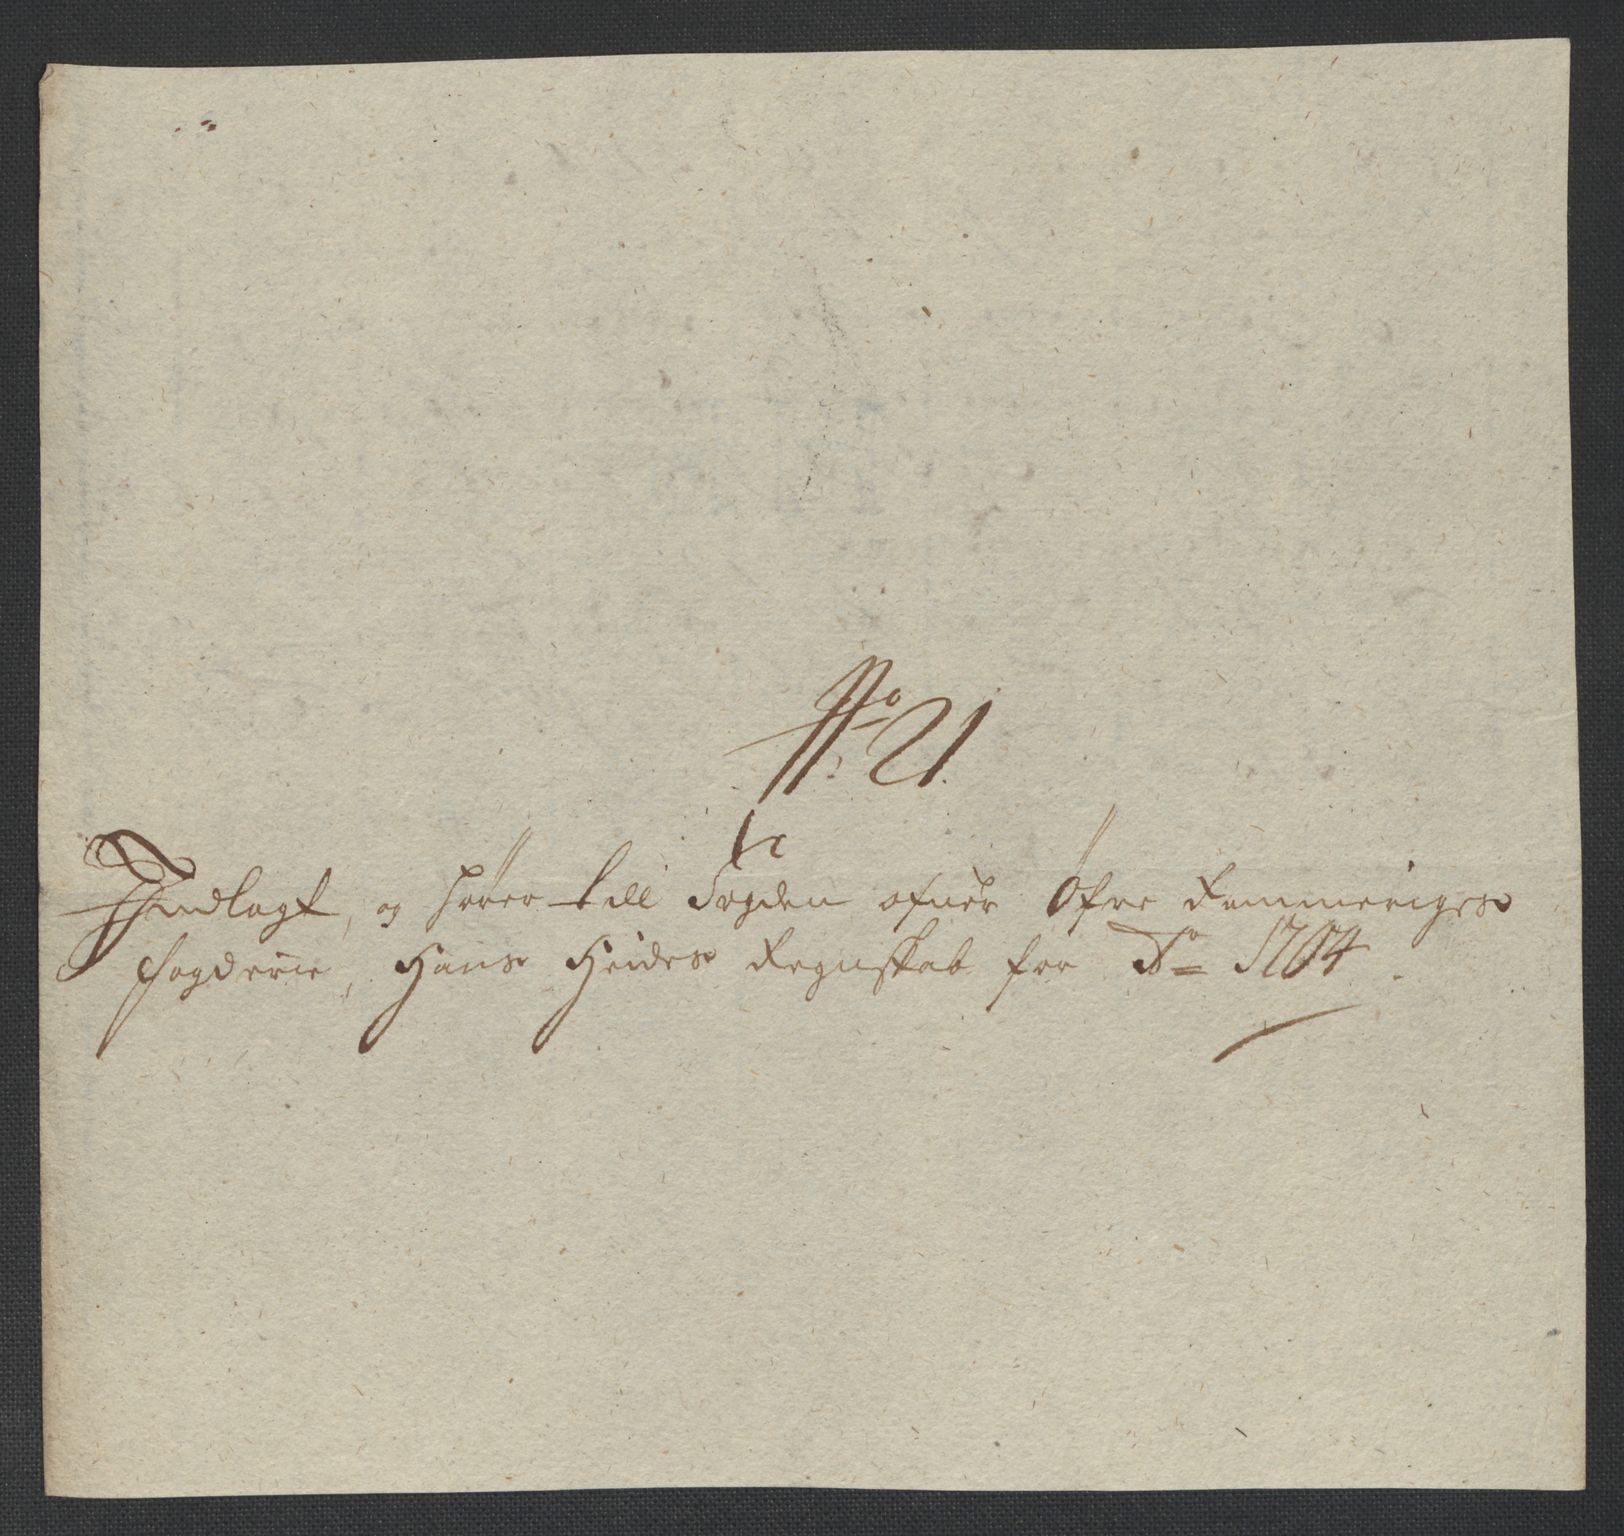 No 21
Indlagt, og hører till Fogden ofuer Øfre Rommeriges
Fogderie, Hans Heides Regnskab for Ao 1704.